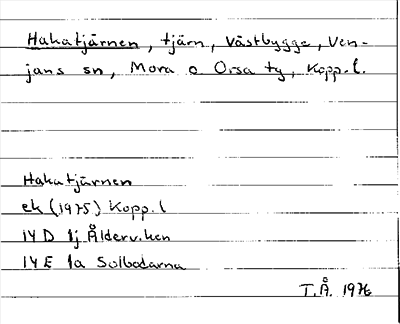 Hakatjärnen, tjärn, Västbygge, Ven-
jans sn, Mora o Orsa ty, Kopp.l.
Hakatjärnen
ek (1975) Kopp.l
14 D 1j Ålderv.ken
14 E 1a Solbodarna
T.Å. 1976